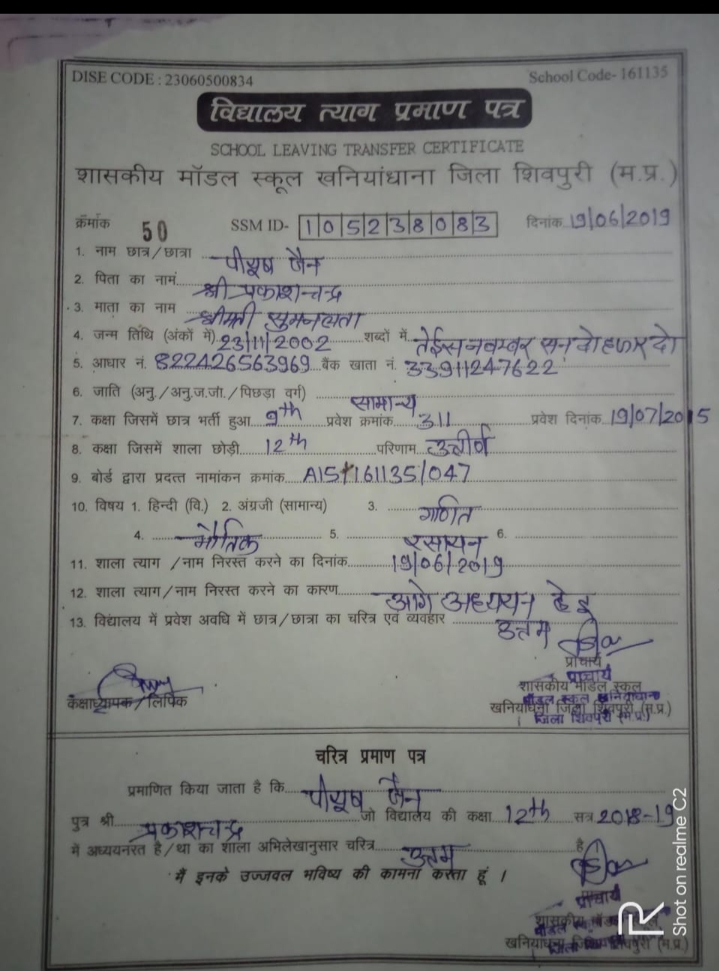 DISE CODE : 23060500834 School Code- 161135
विद्यालय त्याग प्रमाण पत्र
SCHOOL LEAVING TRANSFER CERTIFICATE
शासकीय मॉडल स्कूल खनियांधाना जिला शिवपुरी (म.प्र.)
क्रमांक 50 SSM ID- 105238083 दिनांक 19/06/2019
1. नाम छात्र/छात्रा पीयूष जैन
2. पिता का नामं श्री प्रकाशचन्द्र
3. माता का नाम श्रीमती सुमनलता
4. जन्म तिथि (अंकों में) 23/11/2002 शब्दों में तेईस नवम्बर सन दो हजार दो
5. आधार नं. 822426563969 बैंक खाता नं. 33911247622
6. जाति (अनु./अनु.ज.जा./पिछड़ा वर्ग) सामान्य
7. कक्षा जिसमें छात्र भर्ती हुआ 9th प्रवेश क्रमांक 311 प्रवेश दिनांक 19/07/2015
8. कक्षा जिसमें शाला छोड़ी 12th परिणाम उत्तीर्ण
9. बोर्ड द्वारा प्रदत्त नामांकन क्रमांक A15/161135/047
10. विषय 1. हिन्दी (वि.) 2. अंग्रजी (सामान्य) 3. गणित
4. भौतिक 5. रसायन 6.
11. शाला त्याग/नाम निरस्त करने का दिनांक 19/06/2019
12. शाला त्याग/नाम निरस्त करने का कारण आगे अध्ययन हेतु
13. विद्यालय में प्रवेश अवधि में छात्र/छात्रा का चरित्र एवं व्यवहार उत्तम
प्राचार्य
प्राचार्य
शासकीय मॉडल स्कूल
मॉडल स्कूल खनियाधाना
कक्षाध्यापक/लिपिक खनियांधाना जिला शिवपुरी (म.प्र.)
जिला शिवपुरी (म.प्र.)
चरित्र प्रमाण पत्र
प्रमाणित किया जाता है कि पीयूष जैन
पुत्र श्री प्रकाशचन्द्र जो विद्यालय की कक्षा 12th सत्र 2018-19
में अध्ययनरत है/था का शाला अभिलेखानुसार चरित्र उत्तम है
मैं इनके उज्जवल भविष्य की कामना करता हूं ।
प्राचार्य
शासकीय मॉडल
खनियांधाना शिवपुरी (म.प्र.)
Shot on realme C2